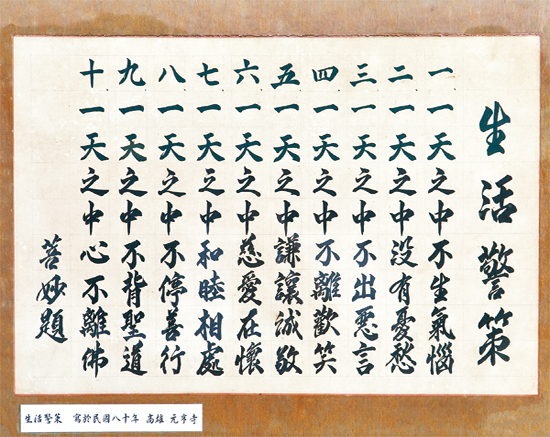 生活警策
一、一天之中不生氣惱
二、一天之中没有憂愁
三、一天之中不出惡言
四、一天之中不離歡笑
五、一天之中謙讓誠敬
六、一天之中慈愛在懷
七、一天之中和睦相處
八、一天之中不停善行
九、一天之中不背聖道
十、一天之中心不離佛
菩妙題
生活警策 寫於民國八十年 高雄 元亨寺